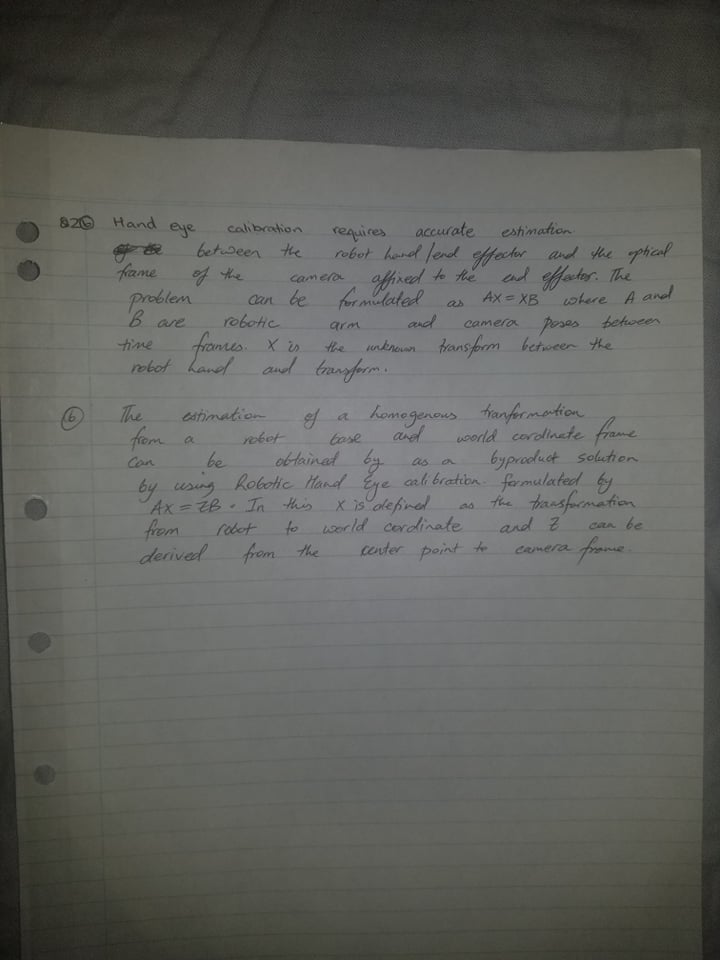 Q2 b Hand eye calibration requires accurate estimation
between the robot hand/end effector and the optical
frame of the camera affixed to the end effector. The
problem can be formulated as AX = XB where A and
B are robotic arm and camera poses between
time frames. X is the unknown transform between the
robot hand and transform.
b The estimation of a homogenous tranformation
from a robot base and world cordinate frame
can be obtained by as a byproduct solution
by using Robotic Hand Eye calibration. formulated by
AX = ZB. In this X is defined as the transformation
from robot to world cordinate and Z can be
derived from the center point to camera frame.